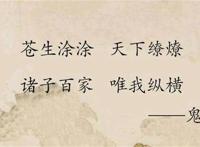 苍生涂涂 天下缭燎
诸子百家 唯我纵横
——鬼